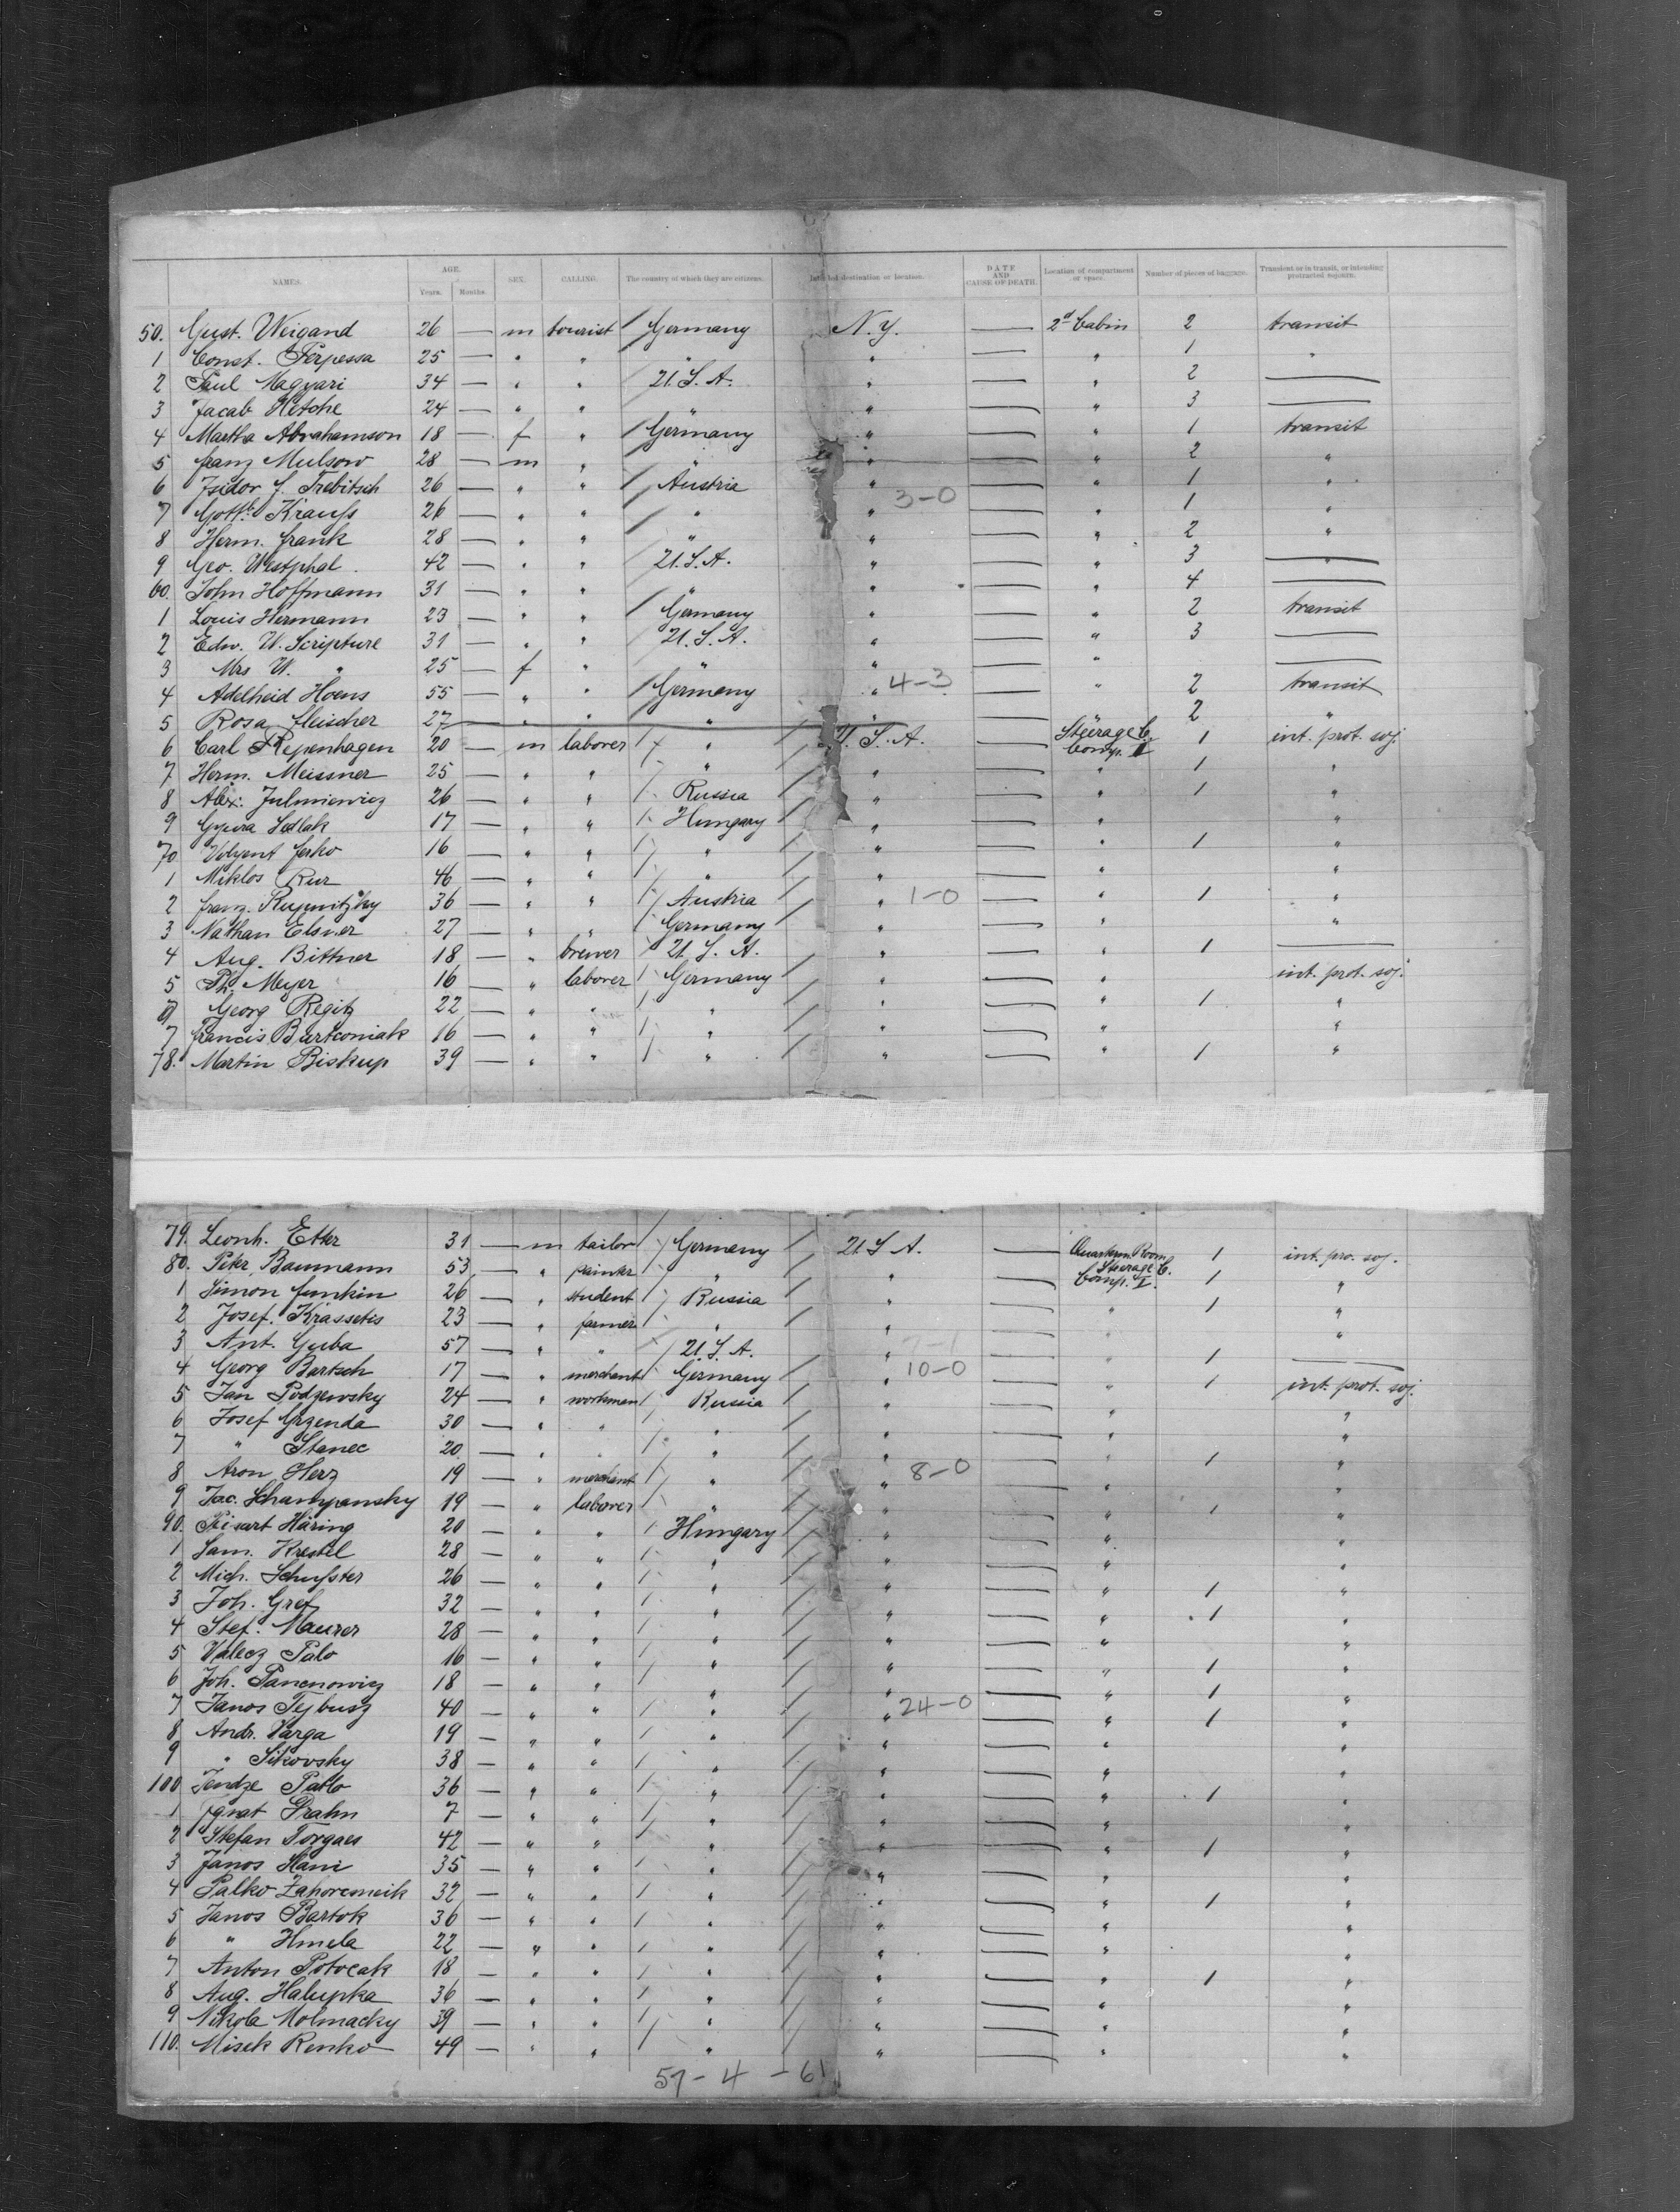 NAMES. AGE. Years. Months. SEX. CALLING. The country of which they are citizens. Intended destination or location. DATE AND CAUSE OF DEATH. Location of compartment or space. Number of pieces of baggage. Transient or in transit, or intending protracted sojourn.
50. Gust. Weigand 26 — m tourist / Germany N.Y. — 2d Cabin 2 transit
1 Const. 25 — " " / " " — " 1 "
2 Paul Magyari 34 — " " / U.S.A. " — " 2 —
3 Jacab 24 — " " / " " — " 3 —
4 Martha Abrahamson 18 — f " / Germany " — " 1 transit
5 franz Mulsow 28 — m " / " " — " 2 "
6 Isidor J. Trebitsch 26 — " " / Austria " — " 1 "
3-0
7 Gottl. Krauss 26 — " " / " " — " 1 "
8 Herm. frank 28 — " " / " " — " 2 "
9 Geo. Westphal. 42 — " " / U.S.A. " — " 3 —
60 John Hoffmann 31 — " " / " " — " 4 —
1 Louis Hermann 23 — " " / Germany " — " 2 transit
2 Edw. W. Scripture 31 — " " / U.S.A. " — " 3 —
3 Mrs W. " 25 — f " / " " — " —
4 Adelheid Hoens 55 — " " / Germany " 4-3 — " 2 transit
5 Rosa fleischer 27 — " " " " — " 2 "
6 Carl Repenhagen 20 — m laborer / " / U.S.A. — Steerage C. Comp. I 1 int. prot. soj.
7 Herm. Meissner 25 — " " / " / " — " 1 "
8 Alex. 26 — " " / Russia / " — " 1 "
9 Gyura Sedlak 17 — " " / Hungary / " — " "
70 ferko 16 — " " / " / " — " 1 "
1 Miklos Rur 46 — " " / " / " — " "
2 franz. 36 — " " / Austria / " 1-0 — " 1 "
3 Nathan Elsner 27 — " " / Germany / " — " "
4 Aug. Bittner 18 — " brewer / U.S.A. " — " 1 —
5 Ph. Meyer 16 — " laborer / Germany / " — " int. prot. soj.
6 Georg Regitz 22 — " " / " / " — " 1 "
7 francis Burtconiak 16 — " " / " / " — " "
78. Martin Biskup 39 — " " / " / " — " 1 "
79. Leonh. Etter 31 — m tailor / Germany / U.S.A. — Quarterm. Room 1 int. pro. soj.
80. Peter Baumann 53 — " painter / " / " — Steerage C. Comp. I. 1 "
1 Simon funkin 26 — " student / Russia / " — " 1 "
2 Josef. Krassetis 23 — " farmer / " / " — " "
3 Ant. Guba 57 — " " / U.S.A. " — " 1 —
4 Georg Bartsch 17 — " merchant / Germany / " 10-0 — " 1 int. prot. soj.
5 Jan Podzewsky 24 — " workman / Russia / " — " "
6 Josef Grzenda 30 — " " / " / " — " "
7 " Stanec 20 — " " / " / " — " 1 "
8 Aron Herz 19 — " merchant / " / " 8-0 — " "
9 Jac. Schampansky 19 — " laborer / " / " — " 1 "
90. Häring 20 — " " / Hungary / " — " "
1 Sam. Krestel 28 — " " / " / " — " "
2 Mich. Schuster 26 — " " / " / " — " 1 "
3 Joh. Gref 32 — " " / " / " — " 1 "
4 Stef. Maurer 28 — " " / " / " — " "
5 Valecz Palo 16 — " " / " / " — " 1 "
6 Joh. Pancnowicz 18 — " " / " / " — " 1 "
7 Janos Tejbusz 40 — " " / " / " 24-0 — " 1 "
8 Andr. Varga 19 — " " / " / " — " "
9 " Sikovsky 38 — " " / " / " — " "
100 Jendze Pablo 36 — " " / " / " — " 1 "
1 Ignat Grahn 7 — " " / " / " — " "
2 Stefan Torgacs 42 — " " / " / " — " 1 "
3 Janos Hani 35 — " " / " / " — " "
4 Palko 32 — " " / " / " — " 1 "
5 Janos Bartok 36 — " " / " / " — " "
6 " Hmela 22 — " " / " / " — " "
7 Anton Potocak 18 — " " / " / " — " 1 "
8 Aug. Halupka 36 — " " / " / " — " "
9 Nikola Molmacky 39 — " " / " / " — " "
110. Misek Renko 49 — " " / " / " — " "
57-4-61